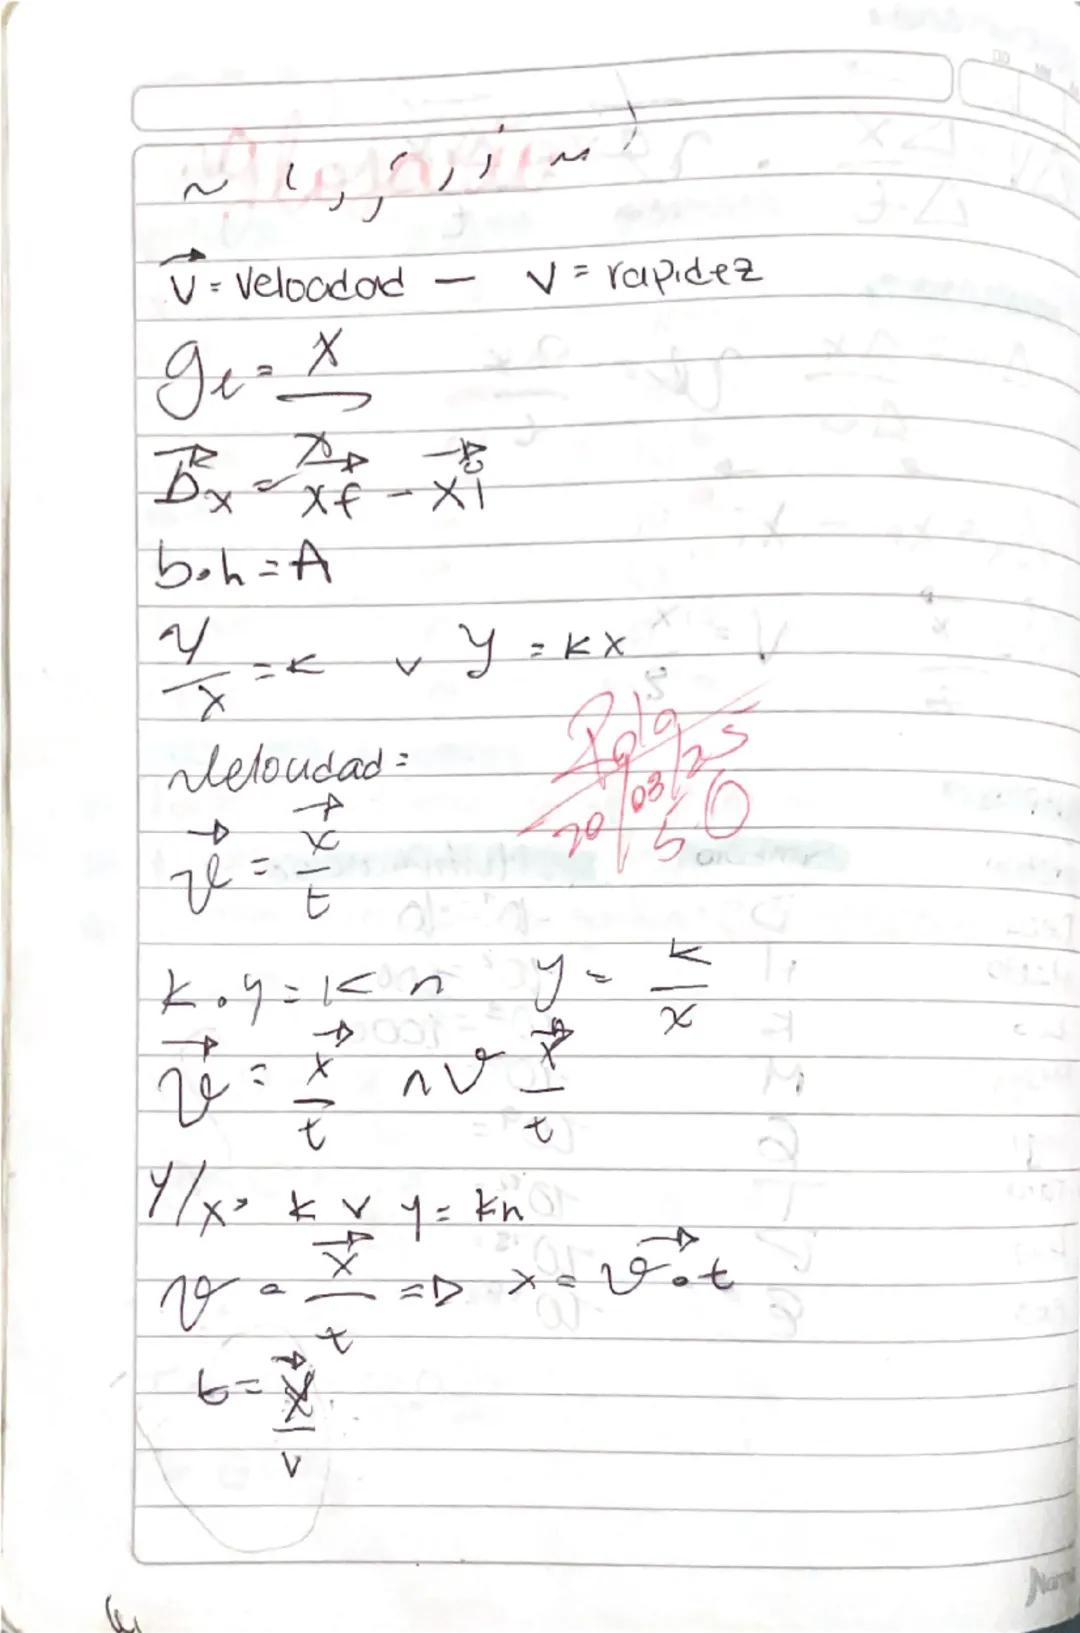 ~ ( , , ^ , , i ~ )
V⃗ = Velocidad — V = rapidez
ge = x
D⃗x = x⃗f - x⃗i
b•h = A
y/x = k v y = kx
Velocidad =
20/03/25
50
v⃗ = x⃗/t
k • y = k n y = k/x
v⃗ = x⃗/t n v x⃗/t
Y/x = k v y = kn
v = x⃗/t => x = v⃗•t
t = x⃗/v